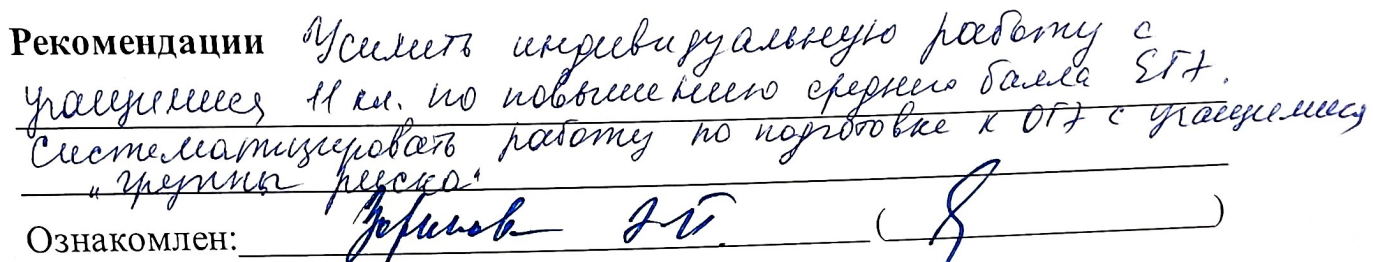 Рекомендации Усилить индивидуальную работу с
учащимися 11 кл. по повышению среднего балла ЕГЭ.
Систематизировать работу по подготовке к ОГЭ с учащимися
"группы риска"
Ознакомлен: ( )